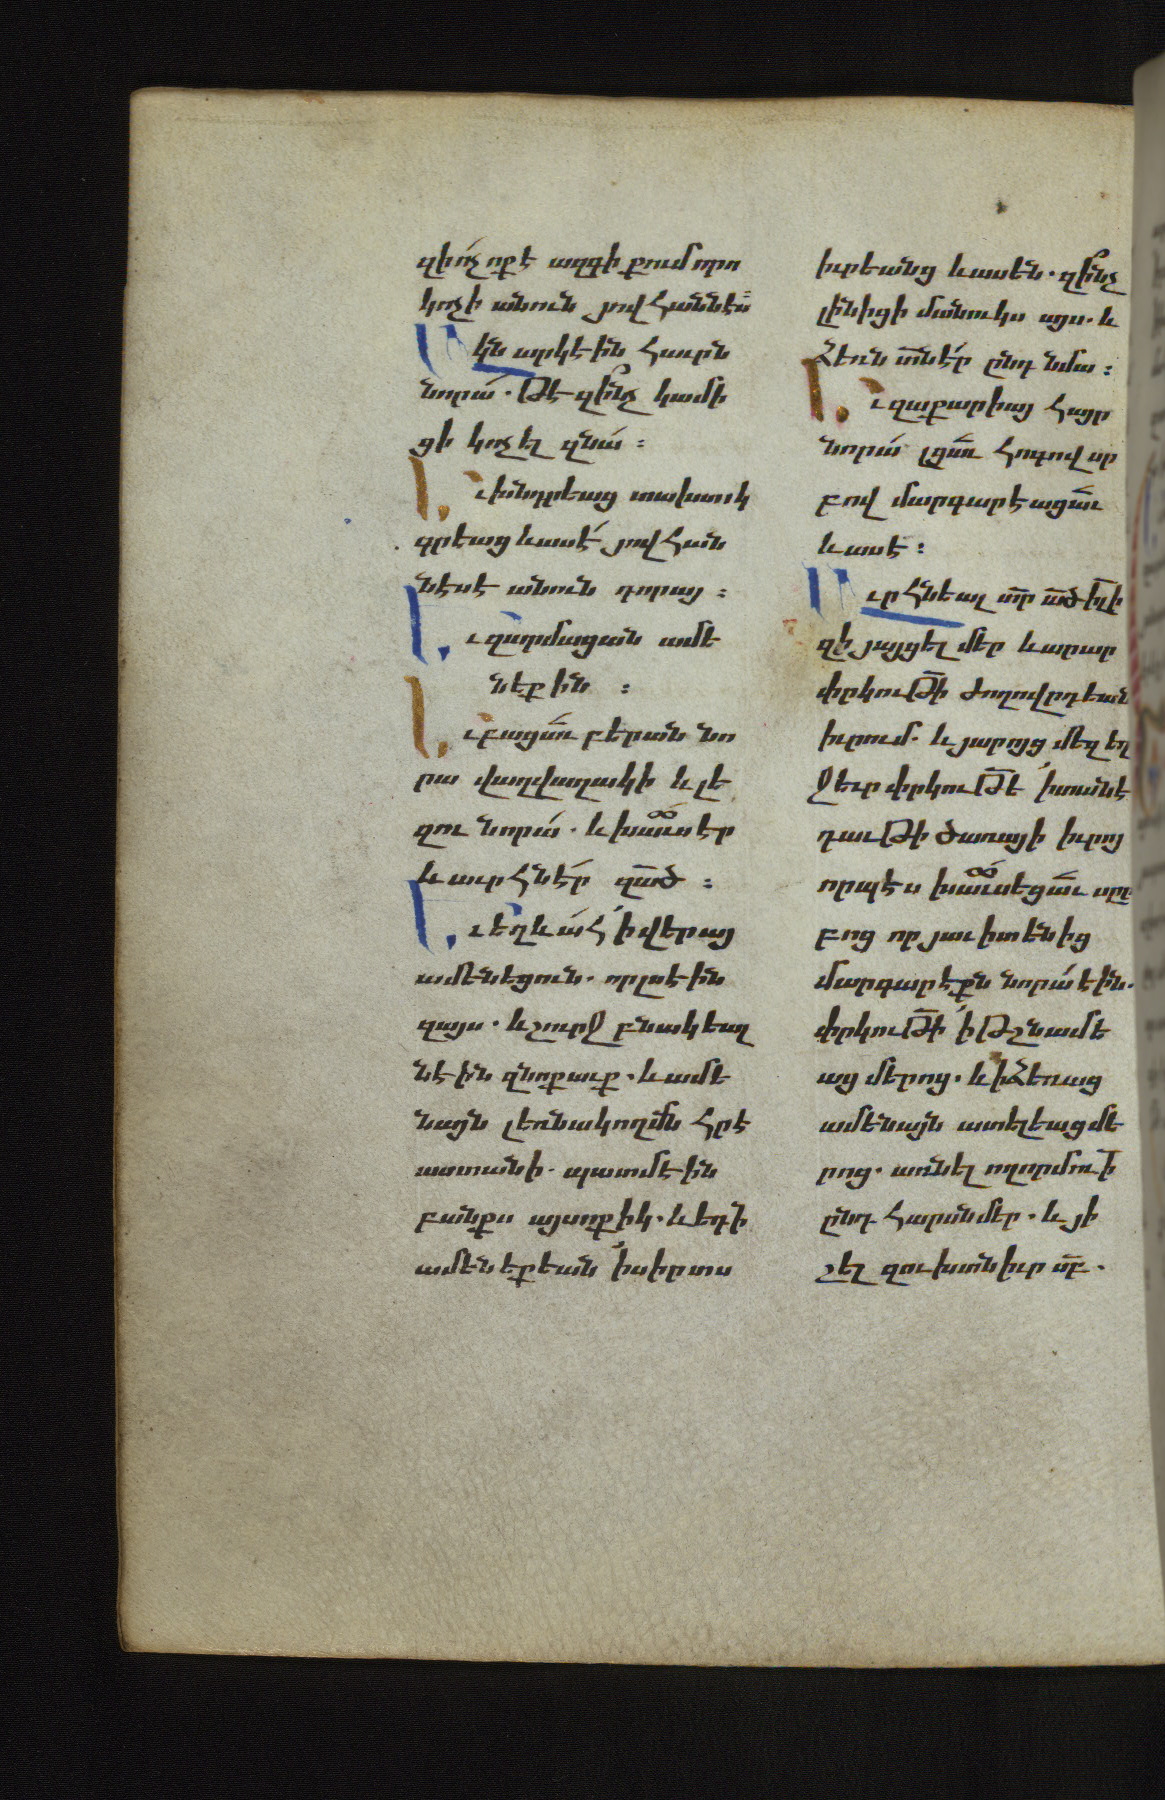 զի ո՛չ ոք է ազգի քում որո
կոչի անուն յովհաննէս
Ակն արկէին հաւրն
նորա՛. թէ զի՞նչ կամի
ցի կոչել զնա՛ :
Եւ խնդրեաց տախտակ
գրեաց և ասէ՛ յովհան
նէս է անուն դորայ :
Եւ զարմացան ամե
նեքին :
Եւ բացաւ բերան նո
րա վաղվաղակի և լե
զու նորա՛. և խաւսէր
և աւրհնէ՛ր զա̅ծ :
Եւ եղև ա՛հ ՛ի վերայ
ամենեցուն. որ լսէին
զայս. և շուրջ բնակեալ
նէին զնոքաւք. և ամե
նայն լեռնակողմն հրէ
աստանի. պատմէին
բանքս այսոքիկ. և եդի
ամենեքեան ՛ի սիրտս
իւրեանց և ասեն. զի՞նչ
լինիցի մանուկս այս. և
ձեռն տն̅ է՛ր ընդ նմա :
Եւ զաքարիայ հայր
նորա՛ լցաւ հոգով սր
բով մարգարէացաւ
և ասէ :
Աւրհնեալ տր̅ ա̅ծ ի̅լի
զի յայցել մեր և արար
փրկութի̅ ժողովրդեան
իւրում. և յարոյց մեզ եղ
ջեւր փրկութե̅ ՛ի տանէ
դաւթի ծառայի իւրոյ
որպէս խաւսեցաւ սր
բոց որ յաւիտենից
մարգարէքն նորա՛ էին.
փրկութի̅ ՛ի թշնամե
աց մերոց. և ի ձեռաց
ամենայն ատելեաց մե
րոց. առնել ողորմուի̅
ընդ հարսն մեր. և յի
շել զուխտն իւր սբ̅.